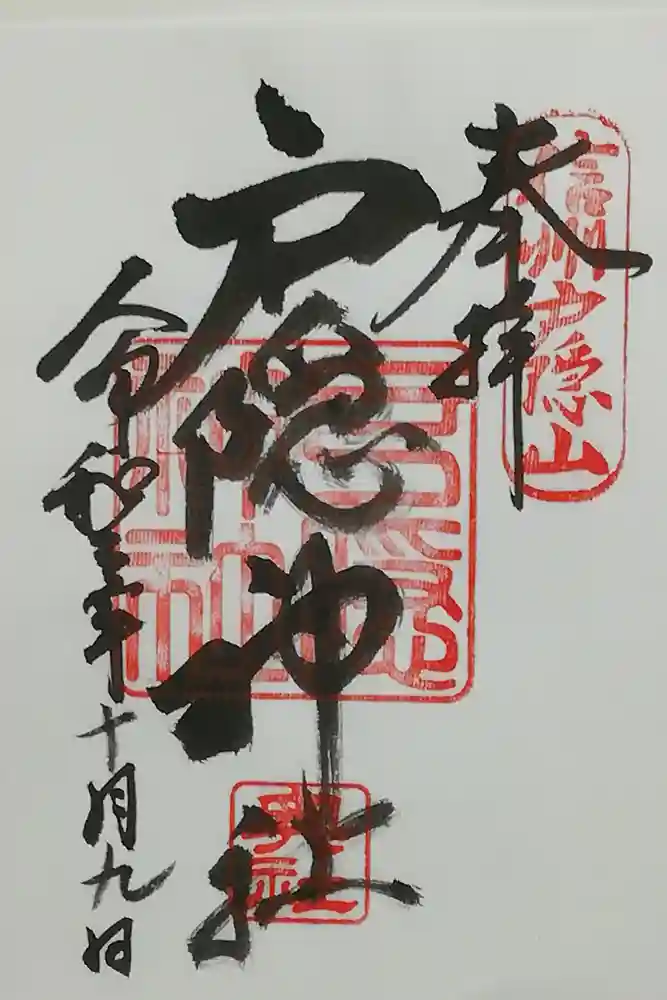 信州戸隠山
奉拝
戸隠神社
戸隠神社
奥社
令和三年十月九日